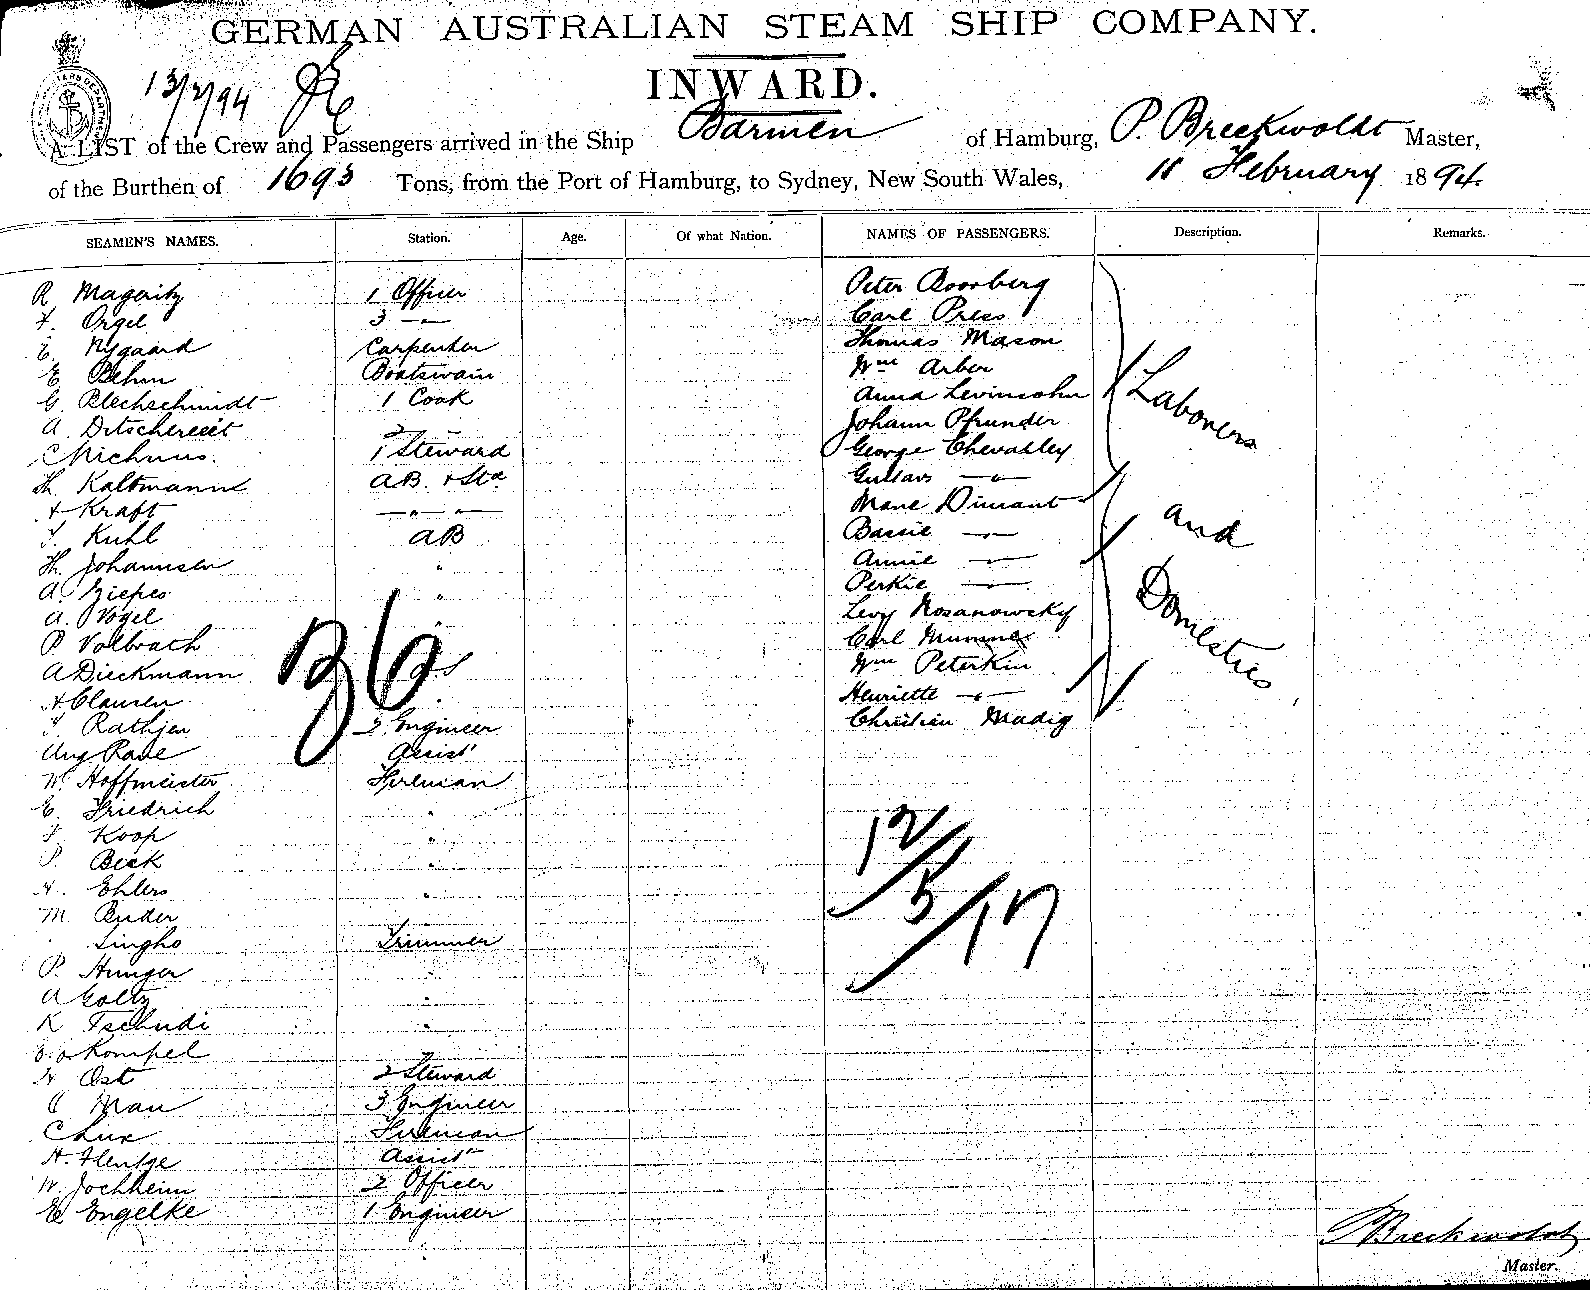 GERMAN AUSTRALIAN STEAM SHIP COMPANY.
INWARD.
13/2/94
A LIST of the Crew and Passengers arrived in the Ship Barmen of Hamburg, P. Breckwoldt Master,
of the Burthen of 1693 Tons, from the Port of Hamburg, to Sydney, New South Wales, 11 February 1894.
SEAMEN'S NAMES. Station. Age. Of what Nation. NAMES OF PASSENGERS. Description. Remarks.
R Mageritz 1 Officer Peter Boorberg
Orgel 3 —"— Carl Press
Nygaard Carpenter Thomas Mason
E. Behm Boatswain Wm Arber
G. Blechschmidt 1 Cook Anna Levinsohn Laborers
A Ditschereit 2 — Johann Pfrunder
1 Steward George Chevalley
Th. Kaltmann AB. + Std Gustav —"—
Kraft —"—"— Marie Dimant and
Kuhl AB Bassie —"—
Th. Johannsen " Annie —"—
A. Ziepes " Perkie —"— Domestics
A. Vogel " Levy Rosanowsky
P Volbrath Carl Mummel
A Dieckmann Wm Peterkin
Clausen Henriette —"—
Rathjen 2 Engineer Christian Madig
Aug Rave Assist
W. Hoffmeister Fireman
E. Friedrich "
Koop "
P. Beck "
Ehlers "
M. Buder
Singho Trimmer
P. Hunger "
A Goltz "
K Tschudi "
Kompel "
Ost 2 Steward
C Mau 3 Engineer
C Lux Fireman
H. Hentge Assist
W Jochheim 2 Officer
E. Engelke 1 Engineer
36
12/5/17
P Breckwoldt
Master.